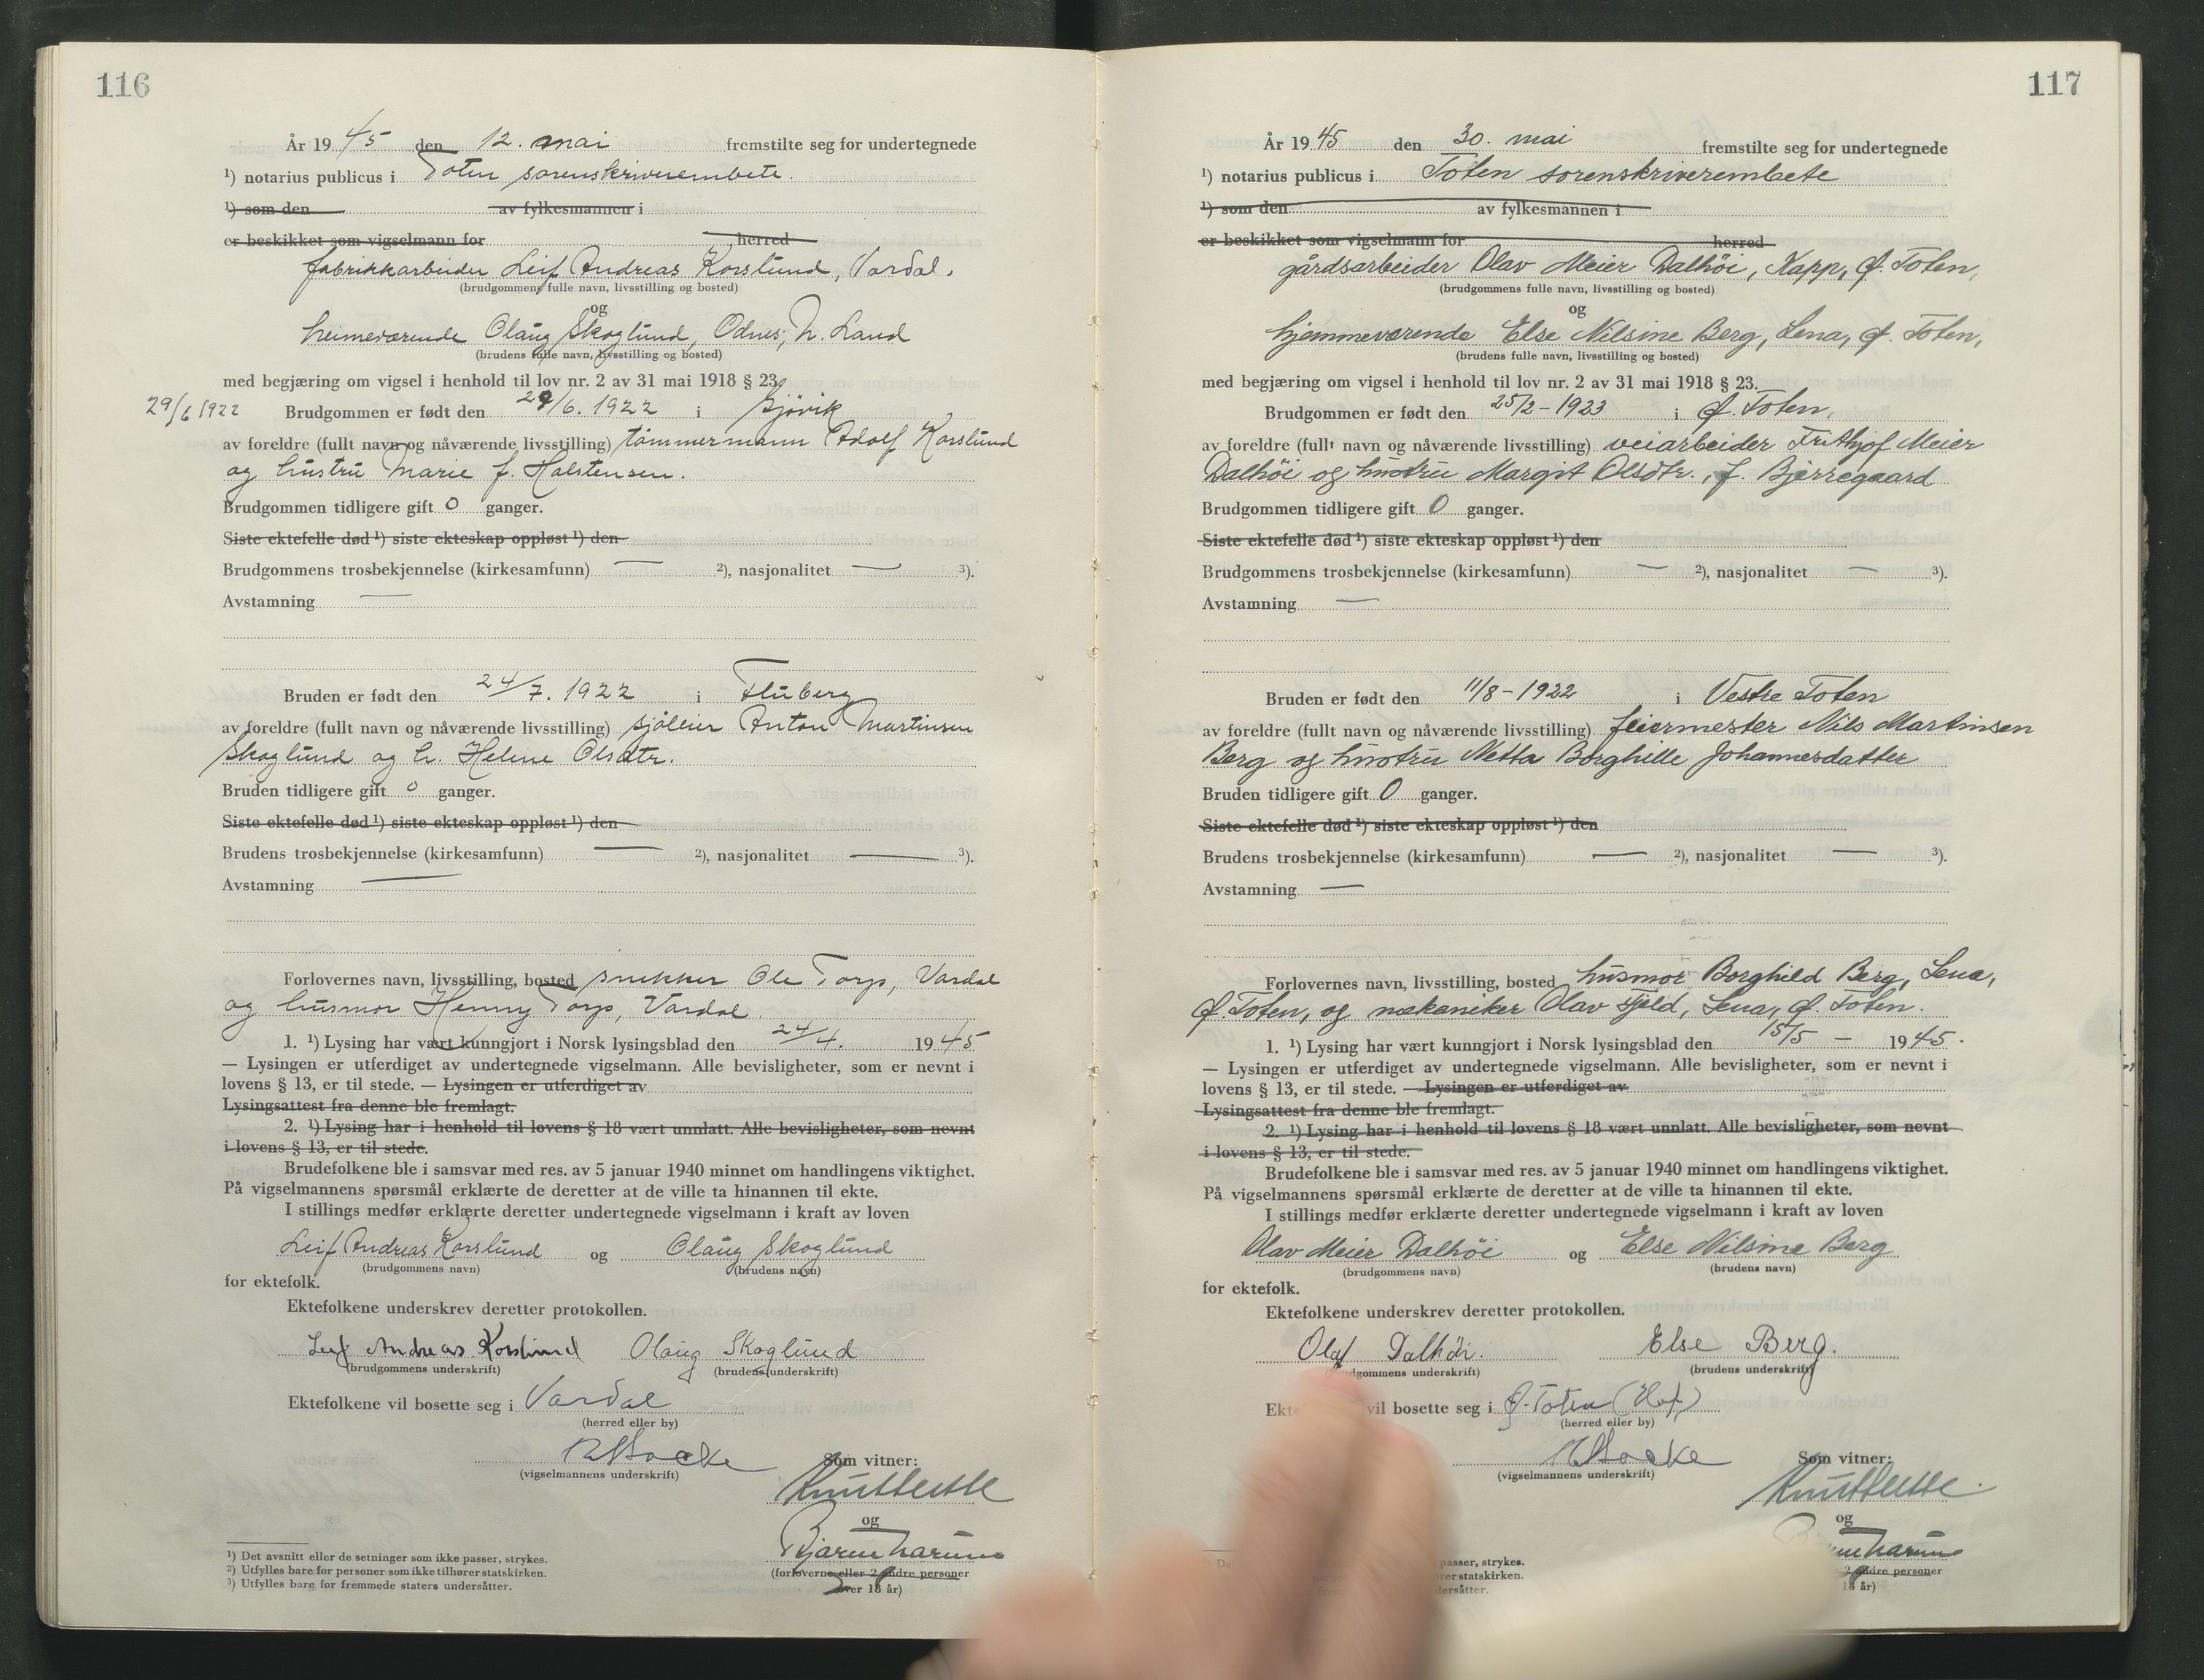 116
År 1945 den 12. mai fremstilte seg for undertegnede
¹) notarius publicus i Toten sorenskriverembete.
¹) som den av fylkesmannen i
er beskikket som vigselmann for herred
fabrikkarbeider Leif Andreas Korslund, Vardal.
(brudgommens fulle navn, livsstilling og bosted)
og
heimeværende Olaug Skoglund, Odnes, N. Land
(brudens fulle navn, livsstilling og bosted)
med begjæring om vigsel i henhold til lov nr. 2 av 31 mai 1918 § 23.
29/6 1922 Brudgommen er født den 29/6. 1922 i Gjövik
av foreldre (fullt navn og nåværende livsstilling) tömmermann Adolf Korslund
og hustru Marie f. Holstensen.
Brudgommen tidligere gift 0 ganger.
Siste ektefelle død ¹) siste ekteskap oppløst ¹) den
Brudgommens trosbekjennelse (kirkesamfunn) — ²), nasjonalitet — ³).
Avstamning —
Bruden er født den 24/7. 1922 i Fluberg
av foreldre (fullt navn og nåværende livsstilling) Anton Martinsen
Skoglund og h. Helene Olsdtr.
Bruden tidligere gift 0 ganger.
Siste ektefelle død ¹) siste ekteskap oppløst ¹) den
Brudens trosbekjennelse (kirkesamfunn) — ²), nasjonalitet — ³).
Avstamning —
Forlovernes navn, livsstilling, bosted snekker Ole Torp, Vardal
og husmor Henny Torp, Vardal.
1. ¹) Lysing har vært kunngjort i Norsk lysingsblad den 24/4. 1945
— Lysingen er utferdiget av undertegnede vigselmann. Alle bevisligheter, som er nevnt i
lovens § 13, er til stede. — Lysingen er utferdiget av
Lysingsattest fra denne ble fremlagt.
2. ¹) Lysing har i henhold til lovens § 18 vært unnlatt. Alle bevisligheter, som nevnt
i lovens § 13, er til stede.
Brudefolkene ble i samsvar med res. av 5 januar 1940 minnet om handlingens viktighet.
På vigselmannens spørsmål erklærte de deretter at de ville ta hinannen til ekte.
I stillings medfør erklærte deretter undertegnede vigselmann i kraft av loven
Leif Andreas Korslund og Olaug Skoglund
(brudgommens navn) (brudens navn)
for ektefolk.
Ektefolkene underskrev deretter protokollen.
Leif Andreas Korslund Olaug Skoglund
(brudgommens underskrift) (brudens underskrift)
Ektefolkene vil bosette seg i Vardal
(herred eller by)
(vigselmannens underskrift) Som vitner:
og
Bjarne
(forloverne eller 2 andre personer
over 18 år)
¹) Det avsnitt eller de setninger som ikke passer, strykes.
²) Utfylles bare for personer som ikke tilhører statskirken.
³) Utfylles bare for fremmede staters undersåtter.
117
År 1945 den 30. mai fremstilte seg for undertegnede
¹) notarius publicus i Toten sorenskriverembete
¹) som den av fylkesmannen i
er beskikket som vigselmann for herred
gårdsarbeider Olav Meier Dalhöi, Kapp, Ø. Toten,
(brudgommens fulle navn, livsstilling og bosted)
og
hjemmeværende Else Nilsine Berg, Lena, Ø. Toten,
(brudens fulle navn, livsstilling og bosted)
med begjæring om vigsel i henhold til lov nr. 2 av 31 mai 1918 § 23.
Brudgommen er født den 25/2 – 1923 i Ø. Toten,
av foreldre (fullt navn og nåværende livsstilling) veiarbeider Frithjof Meier
Dalhöi og hustru Margit Olsdtr., f. Bjerregaard
Brudgommen tidligere gift 0 ganger.
Siste ektefelle død ¹) siste ekteskap oppløst ¹) den
Brudgommens trosbekjennelse (kirkesamfunn) — ²), nasjonalitet — ³).
Avstamning —
Bruden er født den 11/8 – 1922 i Vestre Toten
av foreldre (fullt navn og nåværende livsstilling) feiermester Nils Martinsen
Berg og hustru Netta Borghille Johannesdatter
Bruden tidligere gift 0 ganger.
Siste ektefelle død ¹) siste ekteskap oppløst ¹) den
Brudens trosbekjennelse (kirkesamfunn) — ²), nasjonalitet — ³).
Avstamning —
Forlovernes navn, livsstilling, bosted husmor Borghild Berg, Lena,
Ø. Toten, og mekaniker Olav Fjeld, Lena, Ø. Toten.
1. ¹) Lysing har vært kunngjort i Norsk lysingsblad den 15/5 – 1945.
— Lysingen er utferdiget av undertegnede vigselmann. Alle bevisligheter, som er nevnt i
lovens § 13, er til stede. — Lysingen er utferdiget av
Lysingsattest fra denne ble fremlagt.
2. ¹) Lysing har i henhold til lovens § 18 vært unnlatt. Alle bevisligheter, som nevnt
i lovens § 13, er til stede.
Brudefolkene ble i samsvar med res. av 5 januar 1940 minnet om handlingens viktighet.
På vigselmannens spørsmål erklærte de deretter at de ville ta hinannen til ekte.
I stillings medfør erklærte deretter undertegnede vigselmann i kraft av loven
Olav Meier Dalhöi og Else Nilsine Berg
(brudgommens navn) (brudens navn)
for ektefolk.
Ektefolkene underskrev deretter protokollen.
Olaf Dalhöi. Else Berg.
dgommens underskrift) (brudens underskrift)
Ekt vil bosette seg i Ø. Toten (Hof)
(herred eller by)
(vigselmannens underskrift) Som vitner:
og
2 andre personer
18 år)
passer, strykes.
rer statskirken.
dersåtter.